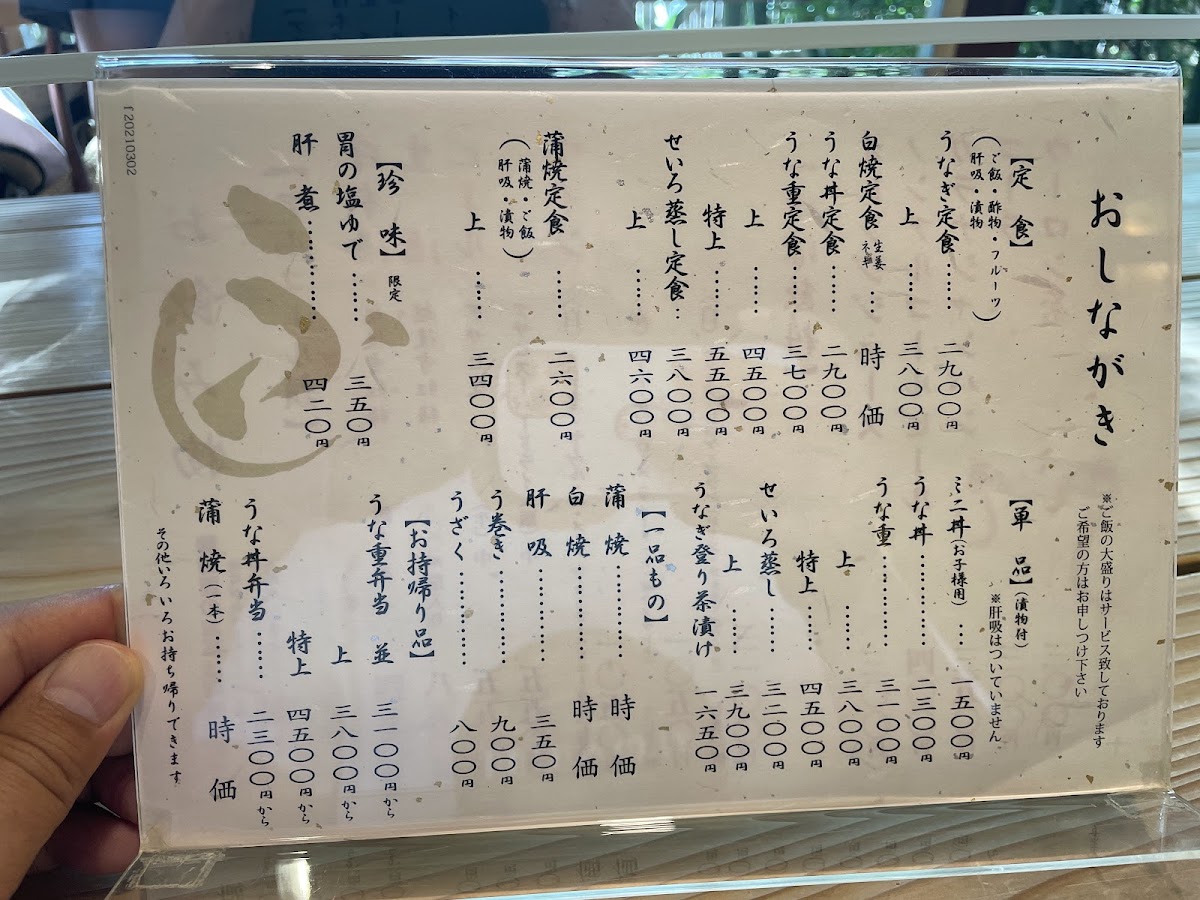 おしながき
※ご飯の大盛りはサービス致しております
ご希望の方はお申しつけ下さい
【定食】
（ご飯・酢物・フルーツ
肝吸・漬物）
うなぎ定食……二九〇〇円
上……三八〇〇円
白焼定食 生姜 わさび…時価
うな丼定食……二九〇〇円
うな重定食……三七〇〇円
上……四五〇〇円
特上……五五〇〇円
せいろ蒸し定食…三八〇〇円
上……四六〇〇円
蒲焼定食……二六〇〇円
（蒲焼・ご飯
肝吸・漬物）
上……三四〇〇円
【珍味】限定
胃の塩ゆで……三五〇円
肝煮…………四二〇円
【単品】（漬物付）
※肝吸はついていません
ミニ丼（お子様用）…一五〇〇円
うな丼…………二三〇〇円
うな重…………三一〇〇円
上……三八〇〇円
特上……四五〇〇円
せいろ蒸し……三二〇〇円
上……三九〇〇円
うなぎ登り茶漬け 一六五〇円
【一品もの】
蒲焼…………時価
白焼…………時価
肝吸…………三五〇円
う巻き…………九〇〇円
うざく…………八〇〇円
【お持帰り品】
うな重弁当 並 三一〇〇円から
上 三八〇〇円から
特上 四五〇〇円から
うな丼弁当……二三〇〇円から
蒲焼（一本）……時価
その他いろいろお持ち帰りできます
f 20210302